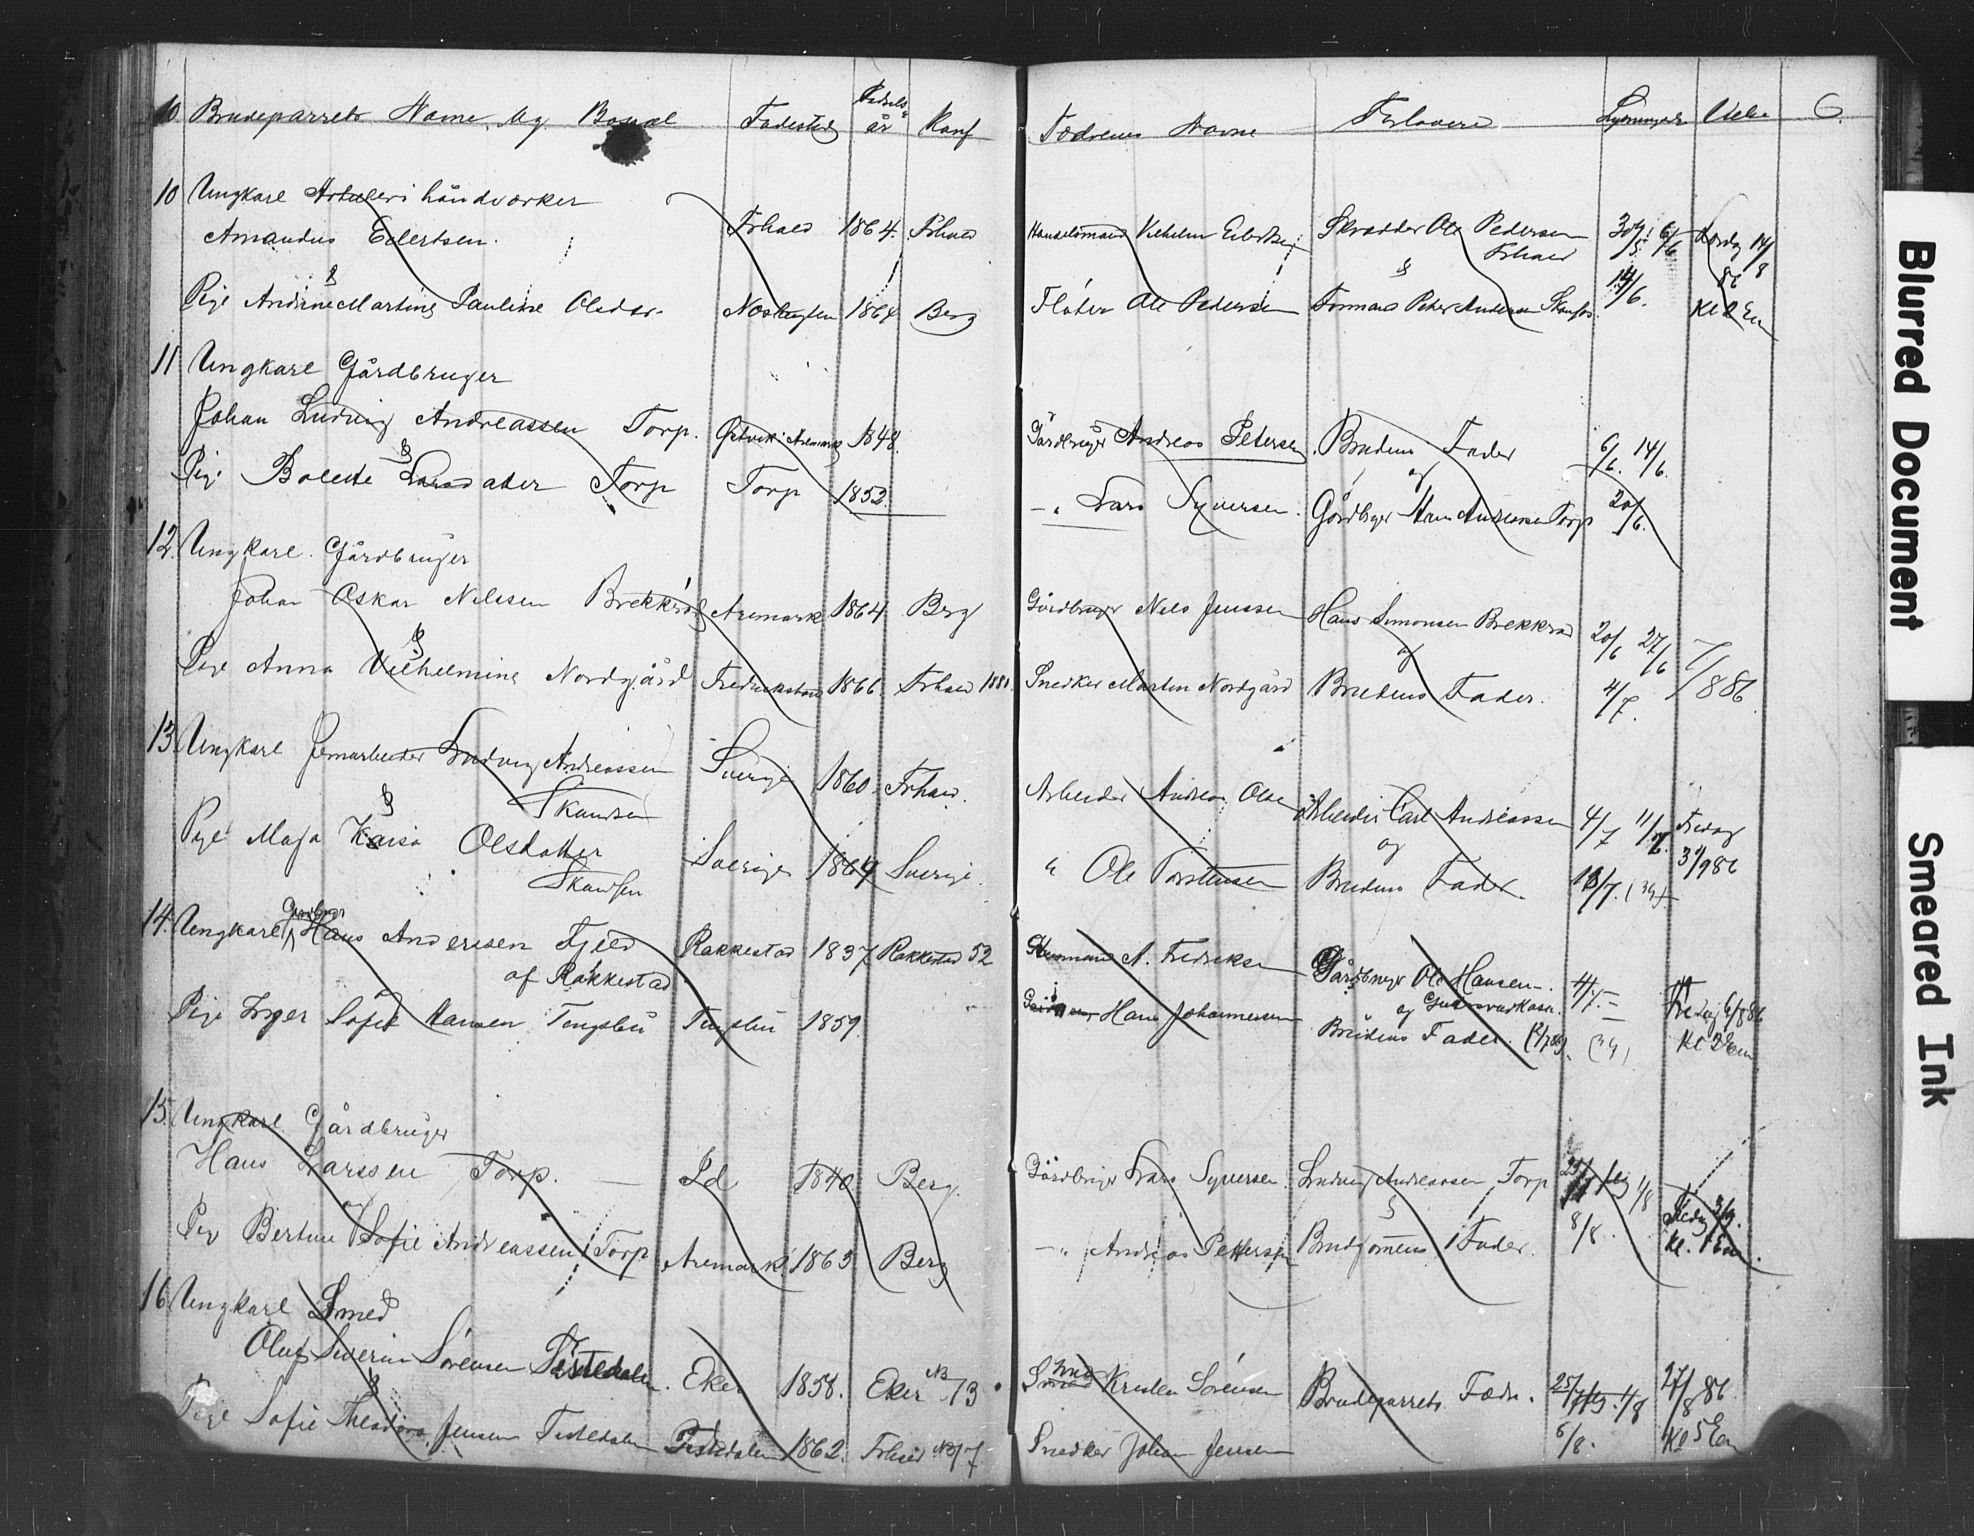 10 Brudeparrets Navne og Bopæl Fødested Fødsels år Konf Fædrenes Navne Forlovere Lysninger Vielse 6.
10 Ungkarl Artilleri håndværker
Amandus Eilertsen. Frhald 1864. Frhald Handelsmand Vilhelm Eilertsen Skrædder Ole Pedersen 30/5 6/6 Lørdag 14/8
& Frhald & 14/6. 86
Pige Andrine Martine Pauline Olsdtr. 1864 Berg Fløter Ole Pedersen Formand Peter Andersen Kl 2 Em
11 Ungkarl Gårdbruger
Johan Ludvig Andreassen Torp. Aremark 1848. Gårdbruger Andreas Petersen Brudens Fader 6/6. 14/6.
& og
Pige Bolette Larsdatter Torp Torp 1852. —"— Lars Syversen. Gårdbrger Hans Andersen Torp 20/6.
12. Ungkarl. Gårdbruger
Johan Oskar Nilssen Brekkerød Aremark 1864 Berg Gårdbruger Nils Jenssen Hans Simonsen Brekkerød 20/6 27/6
& og
Pige Anna Vilhelmine Nordgård Fredrikstad 1866 Frhald 1881. Snedker Martin Nordgård Brudens Fader. 4/7. 7/8 86.
13. Ungkarl Jernarbeider Ludvig Andreassen Sverige 1860. Frhald. Arbeider Andreas Olsen Arbeider Carl Andreassen 4/7 11/7. Fredag
& Skansen og 3/9 86
Pige Maja Kaisa Olsdatter Sverige 1864 Sverige. " Ole Torstensen Brudens Fader. 18/7. (34)
Skansen
14. Ungkarl Gårdbrger Hans Andersen Fjeld Rakkestad 1837 Rakkestad 52 A. Fredriksen Gårdbruger Ole Hansen 4/7.
af Rakkestad og
Pige Inger Sofie Hansen Tingsbu Tingsbu 1859. Hans Johannessen Brudens Fader. (34) Fredag 6/8 86
Kl 2 Em
15. Ungkarl. Gårdbruger
Hans Larssen Torp. — Id 1840 Berg. Gårdbruger Lars Syversen. Ludvig Andreassen Torp 1/8
og &
Pige Bertine Sofie Andreassen Torp Aremark 1863 Berg —"— Andreas Pettersen Brudgomens Fader. 8/8. Fredag 3/9.
Kl. 1 Em.
16. Ungkarl Smed
Oluf Severin Sørensen Tistedalen. Eker 1858. Eker No 73 Smed Kristen Sørensen Brudeparrets Fædre. 25/7 1/8 27/8 86
&
Pige Sofie Theodora Jensen Tistedalen Tistedalen 1862. Frhald No 77 Snedker Johan Jensen 8/8. Kl 5 Em
Blurred Document
Smeared Ink